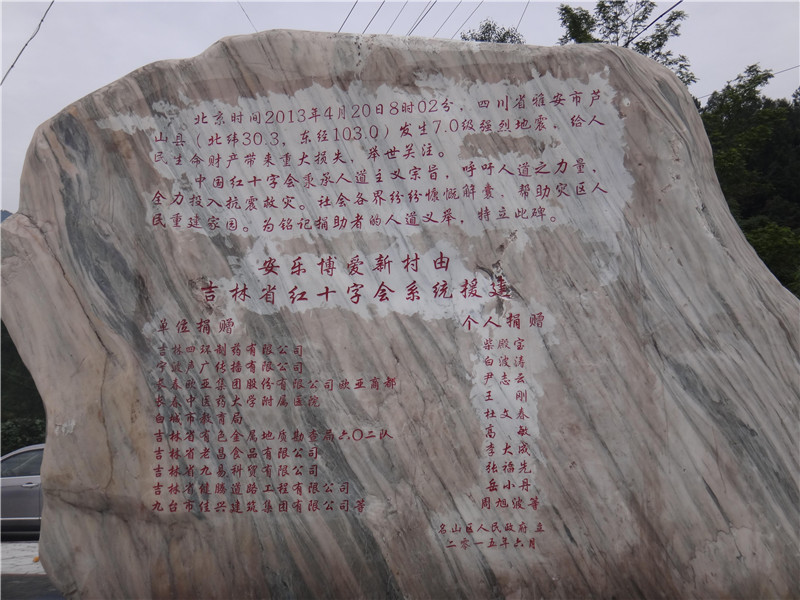 北京时间2013年4月20日8时02分，四川省雅安市芦
山县（北纬30.3，东经103.0）发生7.0级强烈地震，给人
民生命财产带来重大损失，举世关注。
中国红十字会秉承人道主义宗旨，呼吁人道之力量，
全力投入抗震救灾。社会各界纷纷慷慨解囊，帮助灾区人
民重建家园。为铭记捐助者的人道义举，特立此碑。
安乐博爱新村由
吉林省红十字会系统援建
单位捐赠
吉林四环制药有限公司
宁波声广传播有限公司
长春欧亚集团股份有限公司欧亚商都
长春中医药大学附属医院
白城市教育局
吉林省有色金属地质勘查局六〇二队
吉林省老昌食品有限公司
吉林省九易科贸有限公司
吉林省健腾道路工程有限公司
九台市佳兴建筑集团有限公司等
个人捐赠
柴殿宝
白波涛
尹志云
王刚
杜文春
高敏
李大成
张福先
岳小丹
周旭波等
名山区人民政府立
二零一五年六月